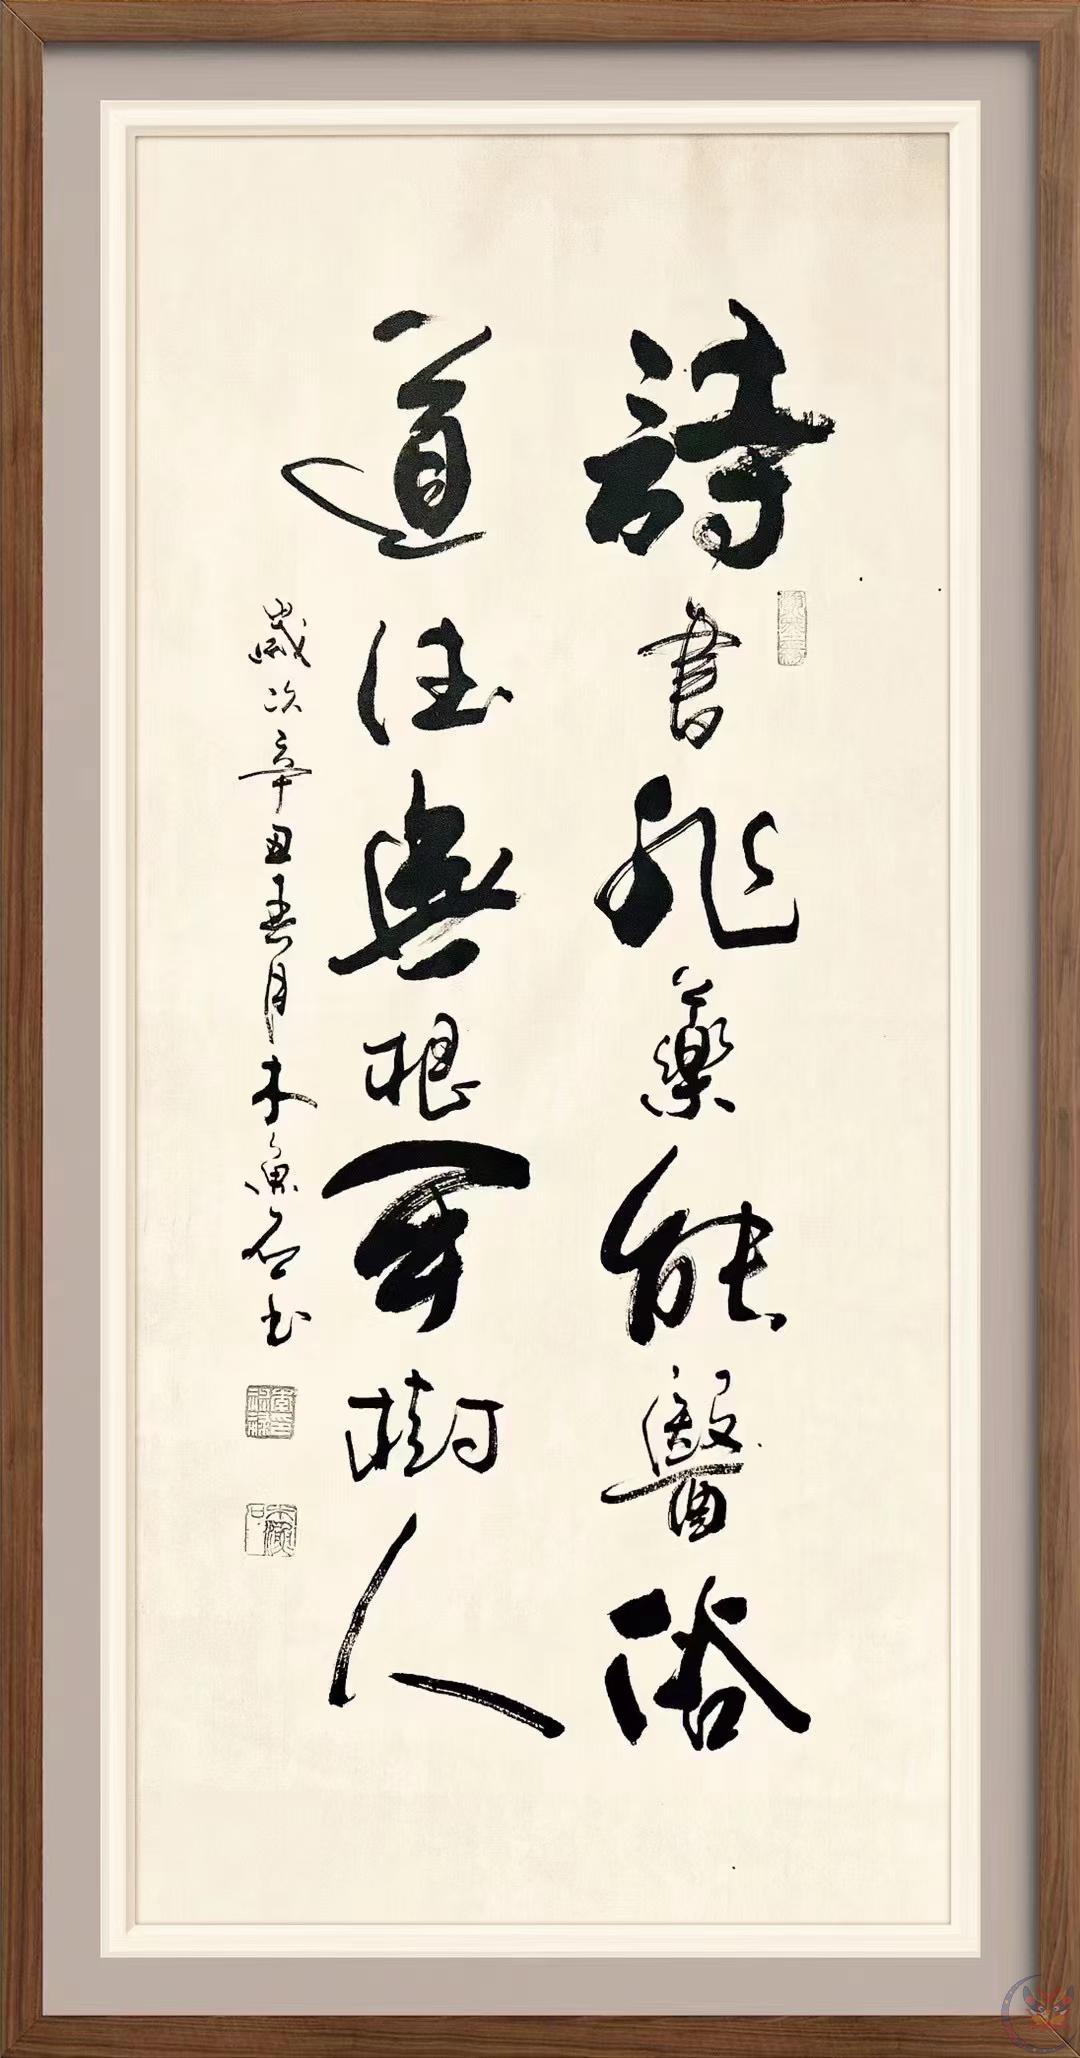 詩書非藥能醫俗
道德無根可樹人
歲次辛丑春月木魚石书